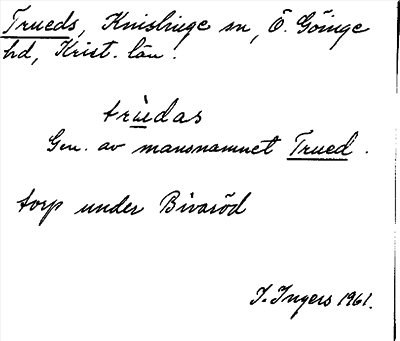 Trueds, Knislinge sn, Ö. Göinge
hd, Krist. län.
trùdas
Gen. av mansnamnet Trued.
torp under Bivaröd
I. Ingers 1961.